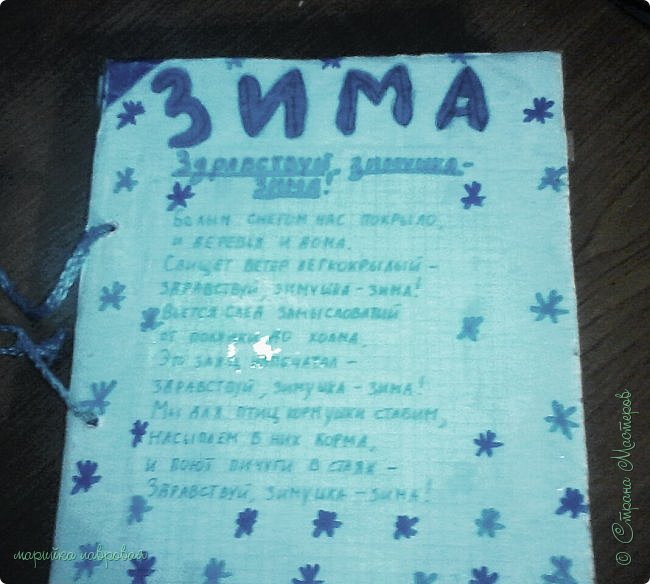 ЗИМА
Здравствуй, зимушка-
зима!
Белым снегом нас покрыло,
и деревья и дома.
Свищет ветер легкокрылый -
Здравствуй, зимушка - зима!
Вьётся след замысловатый
от полянки до холма,
Это заяц напечатал -
здравствуй, зимушка - зима!
Мы для птиц кормушки ставим,
насыпаем в них корма,
и поют пичуги в стаях -
Здравствуй, зимушка - зима!
марийка лавровая
© Страна Мастеров